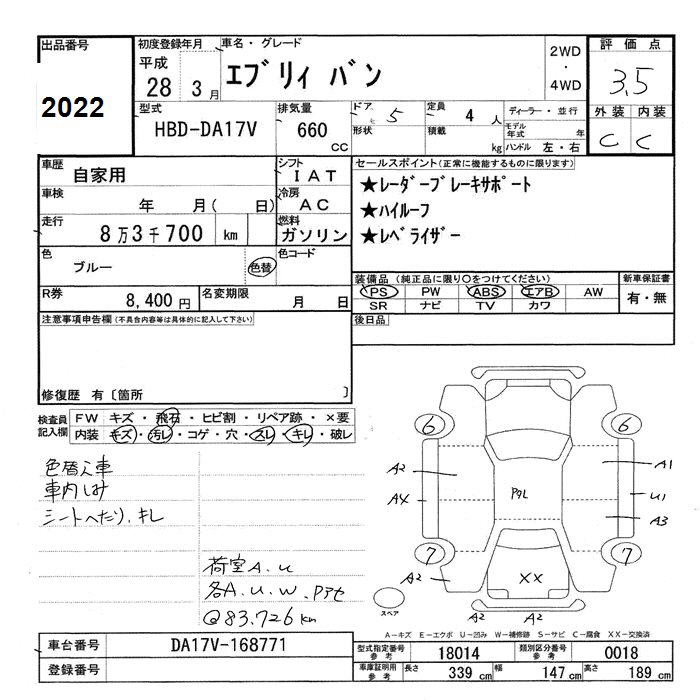 出品番号 初度登録年月 車名・グレード 2WD・4WD 評価点
2022 平成28 3月 エブリィ バン 3.5
型式 HBD-DA17V 排気量 660 CC ドア 5 形状 定員 4人 積載 kg ディーラー・並行 モデル年式 年 ハンドル 左・右 外装 C 内装 C
車歴 自家用 シフト IAT セールスポイント(正常に機能するものに限ります)
車検 年 月( 日) 冷房 AC ★レーダーブレーキサポート
★ハイルーフ
走行 8万3千700 km 燃料 ガソリン ★レベライザー
色 ブルー 色替 色コード
R券 8,400円 名変期限 月 日
装備品(純正品に限り○をつけてください) 新車保証書
PS PW ABS エアB AW 有・無
SR ナビ TV カワ
注意事項申告欄(不具合内容等は具体的に記入して下さい) 後日品
修復歴 有〔箇所 〕
検査員記入欄 FW キズ・飛石・ヒビ割・リペア跡・×要
内装 キズ・汚レ・コゲ・穴・スレ・キレ・破レ
色替え車
車内しみ
シートへたり、キレ
荷室A.U
各A.U.W.Pアセ
@83.726km
6 6
A2 A1
A4 Pアセ U1
A3
7 7
A2 XX
スペア A2 A2
A-キズ E-エクボ U-凹み W-補修跡 S-サビ C-腐食 XX-交換済
車台番号 DA17V-168771 型式指定番号 参考 18014 類別区分番号 参考 0018
登録番号 車庫証明用 参考 長さ 339 cm 幅 147 cm 高さ 189 cm